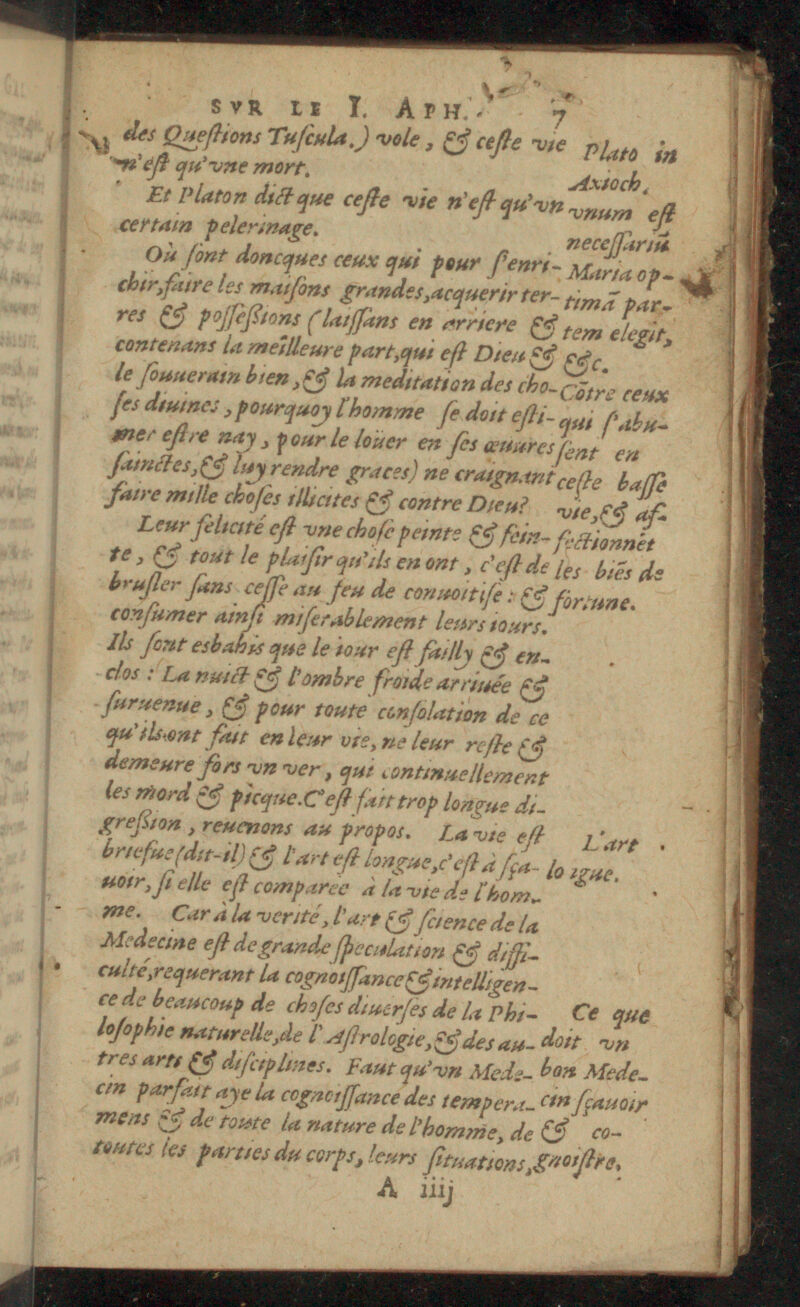 SVR LE I. APH. 7
des Questions Tuscula.) vole, & ceste vie
n'est qu'vne mort.
Et Platon dict que ceste vie n'est qu'vn
certain pelerinage.
Où sont doncques ceux qui pour s'enri-
chir, faire les maisons grandes, acquerir ter-
res & possessions (laissans en arriere &
contenans la meilleure part, qui est Dieu &
le souuerain bien, & la meditation des cho-
ses diuines, pourquoy l'homme se doit esti-
mer estre nay, pour le loüer en ses œuures
sainctes, & luy rendre graces) ne craignant
faire mille choses illicites & contre Dieu?
Leur felicité est vne chose peinte & fein-
te, & tout le plaisir qu'ils en ont, c'est de
brusler sans cesse au feu de conuoitise : &
consumer ainsi miserablement leurs iours.
Ils sont esbahis que le iour est failly & en-
clos : La nuict & l'ombre froide arriuée &
suruenue, & pour toute consolation de ce
qu'ils ont fait en leur vie, ne leur reste &
demeure fors vn ver, qui continuellement
les mord & picque. C'est fait trop longue di-
gression, reuenons au propos. La vie est
briefue (dit-il) & l'art est longue, c'est à sça-
uoir, si elle est comparee à la vie de l'hom-
me. Car à la verité, l'art & science de la
Medecine est de grande speculation & diffi-
culté, requerant la cognoissance & intelligen-
ce de beaucoup de choses diuerses de la Phi-
losophie naturelle, de l'Astrologie, & des au-
tres arts & disciplines. Faut qu'vn Mede-
cin parfait aye la cognoissance des tempera-
mens & de toute la nature de l'homme, de
toutes les parties du corps, leurs situations,
A iiij
Plato in
Axioch.
vnum est
necessariũ
Maria op-
timã par-
tem elegit,
&c.
Cõtre ceux
qui s'abu-
sent en
ceste basse
vie, & af-
fectionnẽt
les biẽs de
fortune.
L'art
longue.
Ce que
doit vn
bon Mede-
cin sçauoir
& co-
gnoistre,